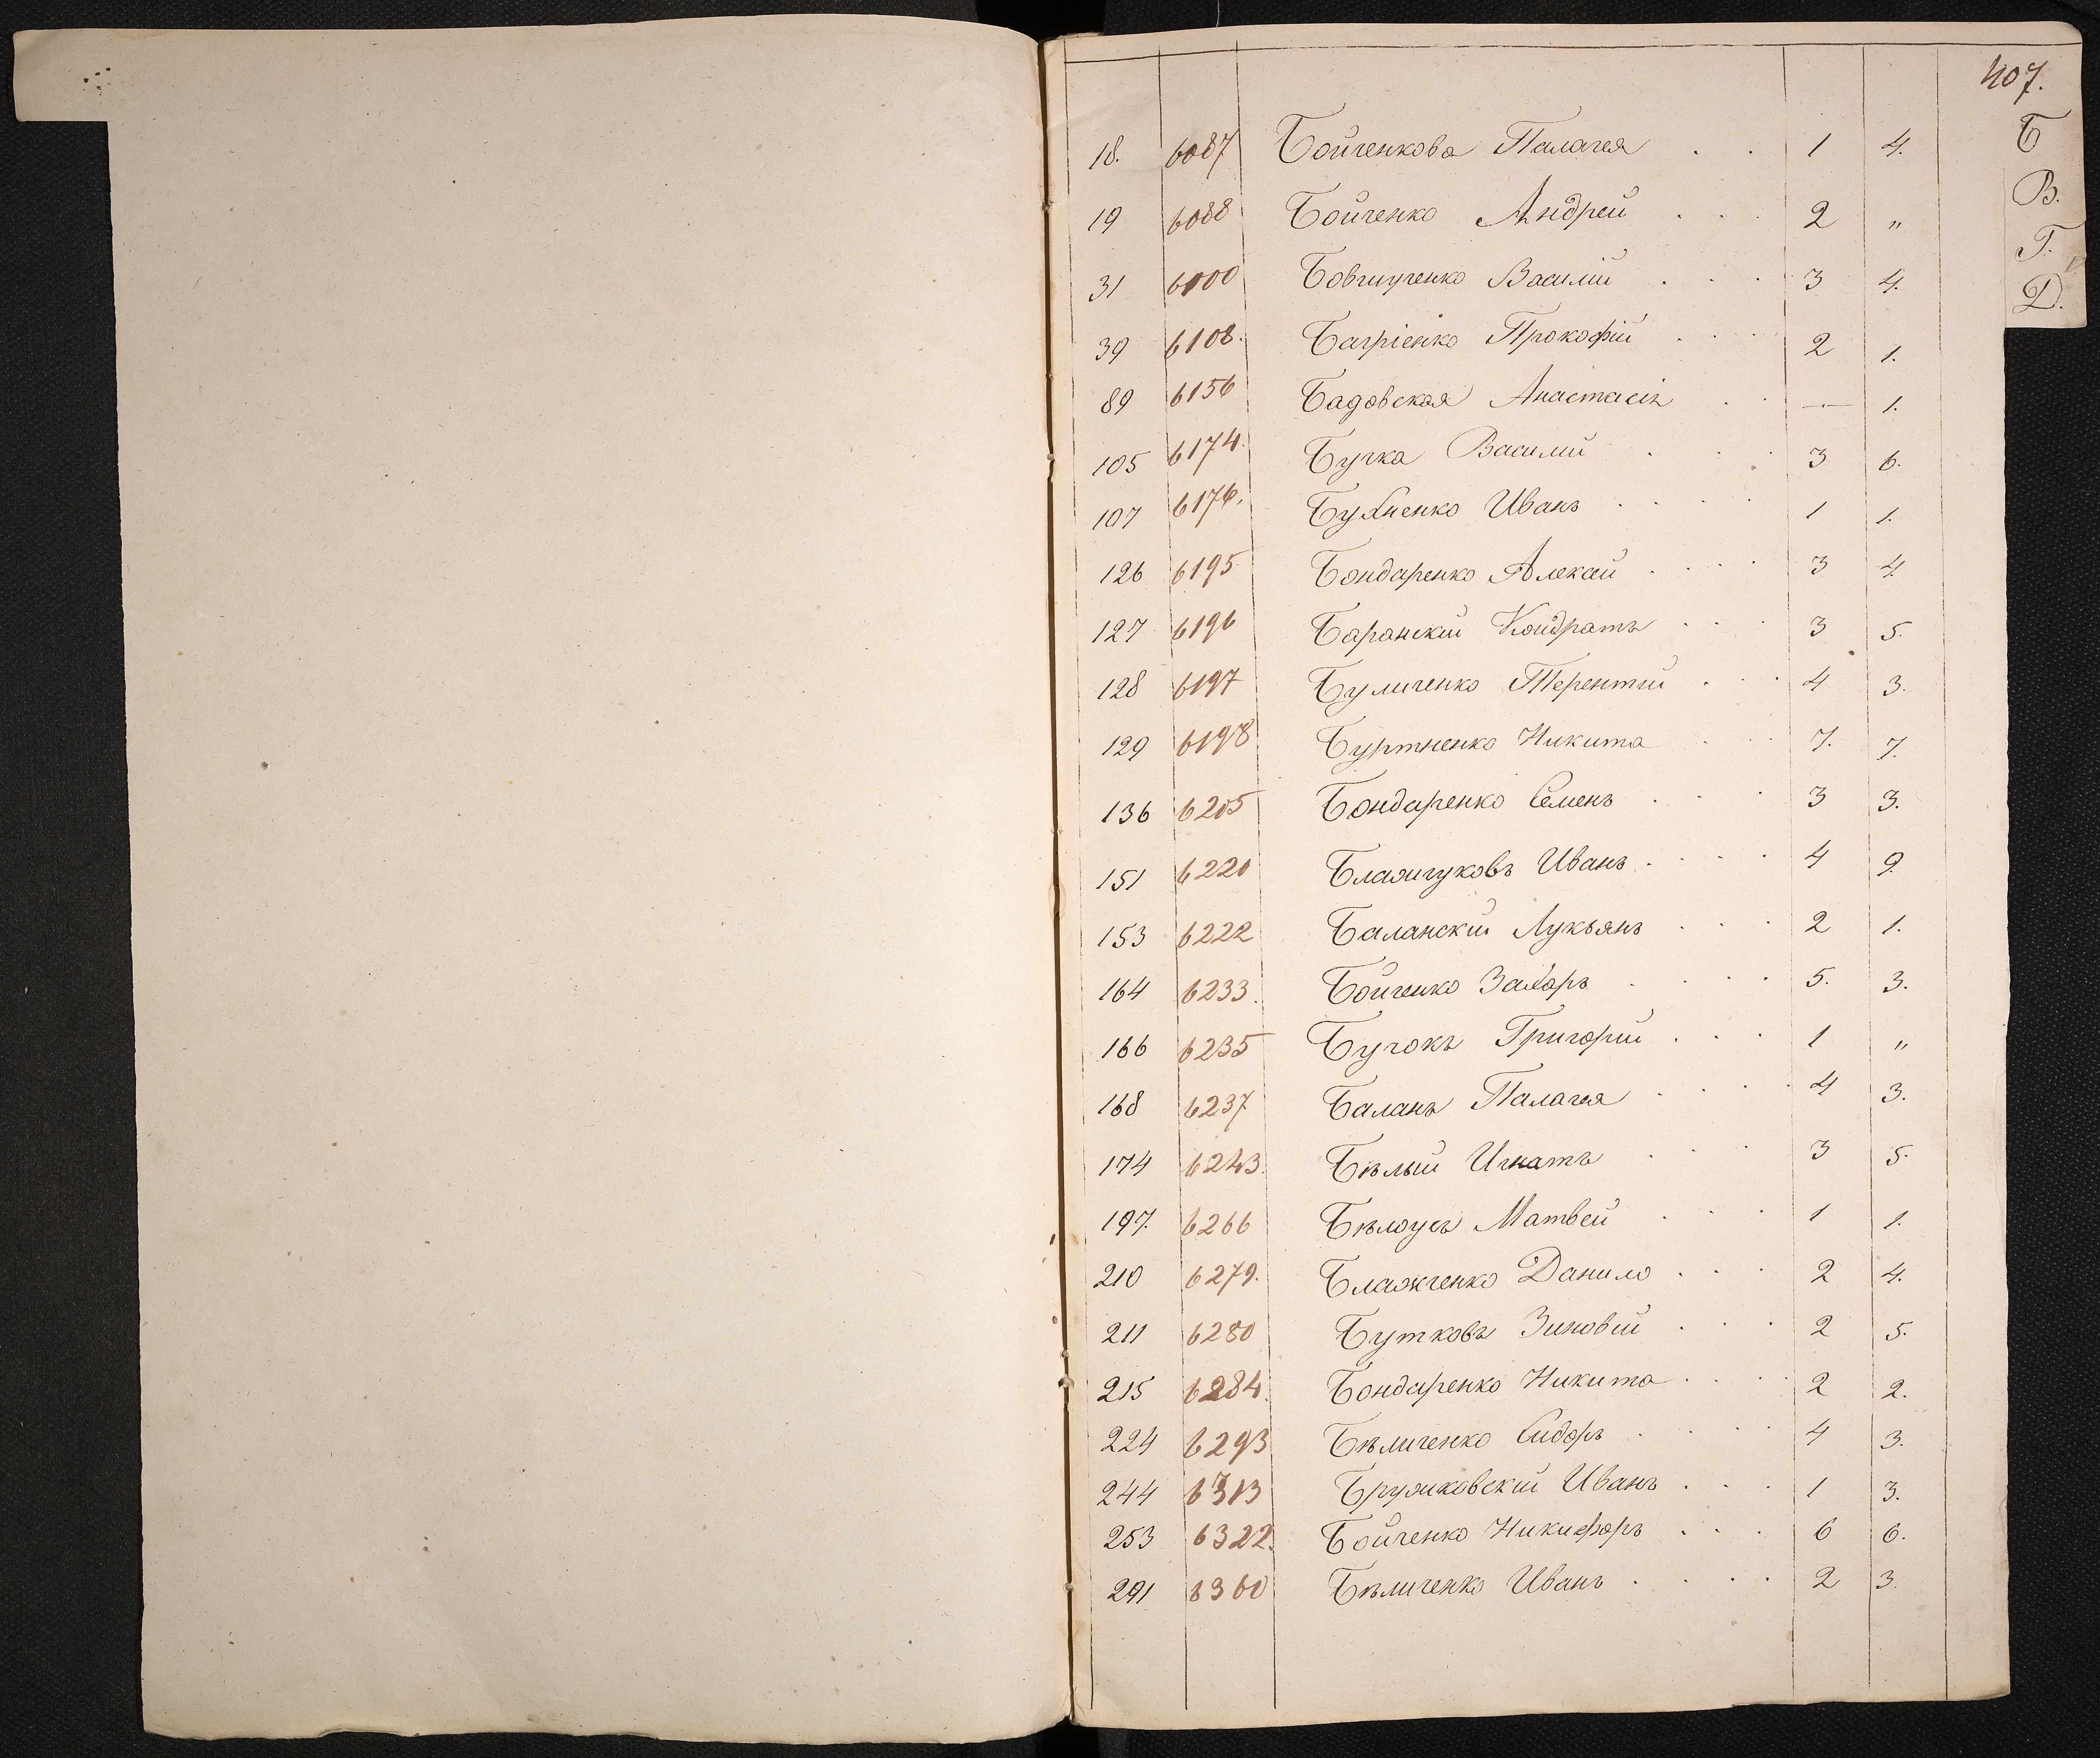 407.
Б
В.
Г.
Д.
18. 6087 Бойченкова Палагея . . 1 4.
19 6088 Бойченко Андрей . . . 2 "
31 6100 Бовчиученко Василій . . . 3 4.
39 6108. Багріенко Прокофій . . . 2 1.
89 6156 Бадовская Анастасія . . — 1.
105 6174. Бучка Василий . . . 3 6.
107 6176. Бухненко Иванъ . . . . 1 1.
126 6195 Бондаренко Алексей . . . . 3 4.
127 6196 Баранский Кондратъ . . . 3 5.
128 6197 Буличенко Терентий . . . 4 3.
129 6198 Буртненко Никита . . . 7. 7.
136 6205 Бондаренко Семенъ . . . 3 3.
151 6220 Блажчуковъ Иванъ . . . . 4 9.
153 6222 Баланский Лукьянъ . . . 2 1.
164 6233. Бойченко Захаръ . . . . 5. 3.
166 6235 Бучокъ Григорій . . . 1 "
168 6237 Баланъ Палагея . . . . 4 3.
174 6243. Бѣлый Игнатъ . . . 3 5.
197. 6266 Бѣлоусъ Матвей . . . 1 1.
210 6279. Блажченко Данило . . . 2 4.
211 6280 Бутковъ Зиновій . . . 2 5.
215 6284. Бондаренко Никита . . . . 2 2.
224 6293 Бѣличенко Сидоръ . . . . 4 3.
244 6313 Бружковский Иванъ . . . 1 3.
253 6322. Бойченко Никифоръ . . . 6 6.
291 6360 Бѣличенко Иванъ . . . . 2 3.